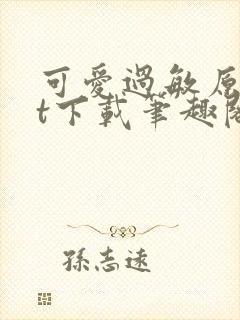 可愛過敏原
t下載筆趣閣
孫志遠